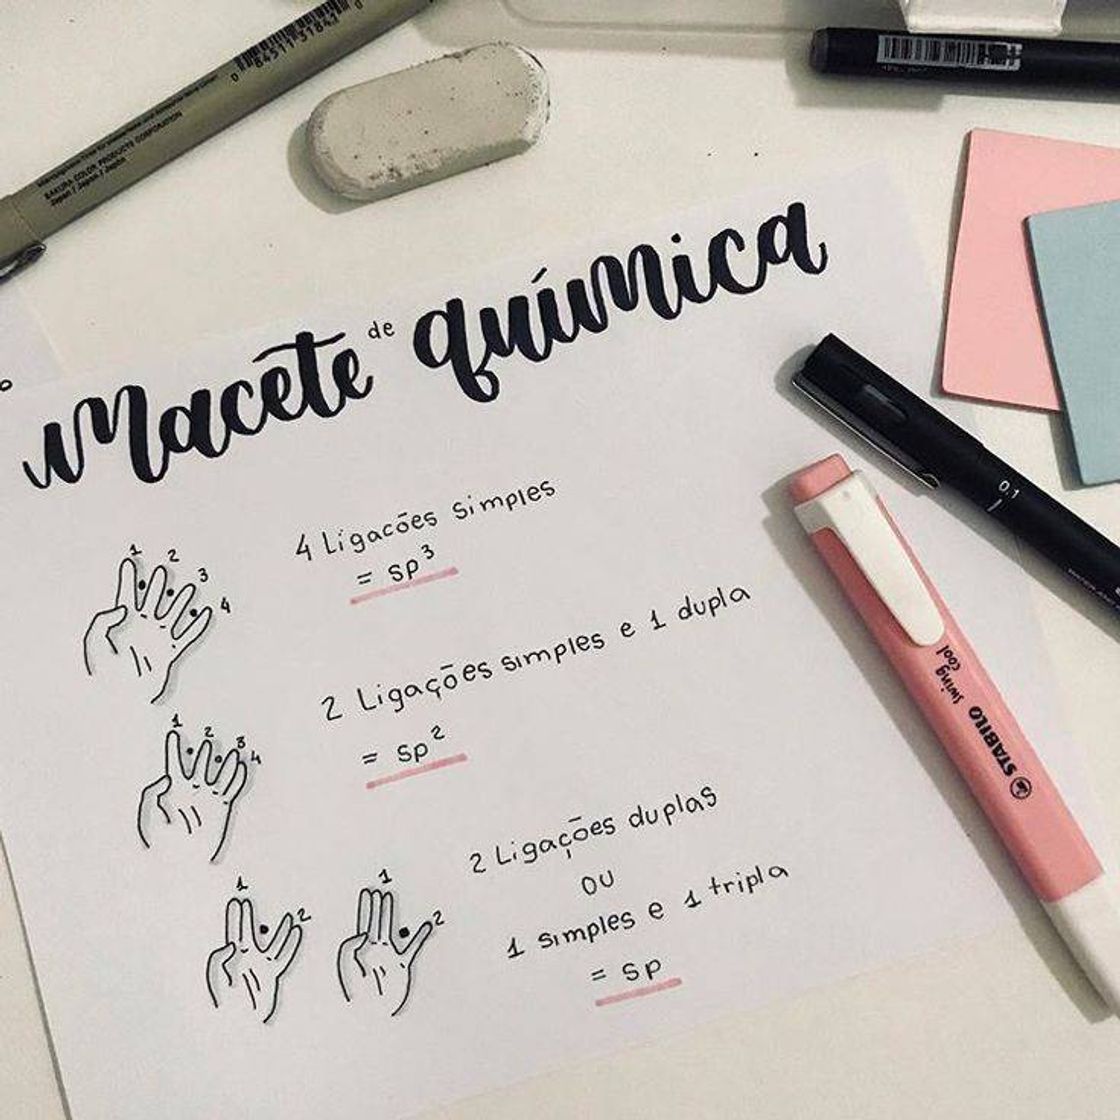 0 84511 31841 0
SAKURA COLOR PRODUCTS CORPORATION
Japan / Japon / Japón
Macete de química
4 Ligacões simples
= sp³
1 2 3 4
2 Ligações simples e 1 dupla
= sp²
1 2 3 4
2 Ligações duplas
ou
1 simples e 1 tripla
= sp
1 2
1 2
0.1
STABILO swing cool